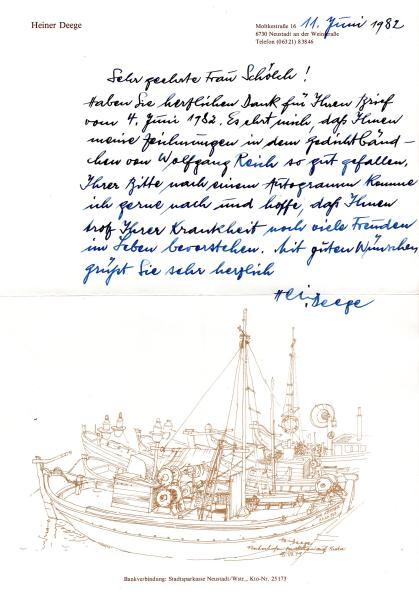 Heiner Deege
Moltkestraße 16
6730 Neustadt an der Weinstraße
Telefon (06321) 83846
11. Juni 1982
Sehr geehrte Frau Schölch!
Haben Sie herzlichen Dank für Ihren Brief
vom 4. Juni 1982. Es ehrt mich, daß Ihnen
meine Zeichnungen in dem Gedichtbänd-
chen von Wolfgang Reich so gut gefallen.
Ihrer Bitte nach einem Autogramm komme
ich gerne nach und hoffe, daß Ihnen
trotz Ihrer Krankheit noch viele Freuden
im Leben bevorstehen. Mit guten Wünschen
grüßt Sie sehr herzlich
Heiner Deege
H. Deege
auf Kreta
Bankverbindung: Stadtsparkasse Neustadt/Wstr., Kto-Nr. 25173